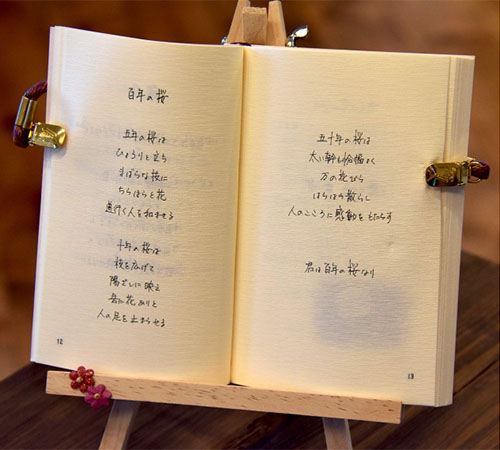 百年の桜
五年の桜は
ひょろりと立ち
まばらな枝に
ちらほらと花
道行く人を和ませる
十年の桜は
枝を広げて
陽ざしに映え
岳に花ありと
人の足を止まらせる
12
五十年の桜は
太い幹も
万の花びら
はらはら散らし
人のこころに感動をもたらす
君は百年の桜なり
13